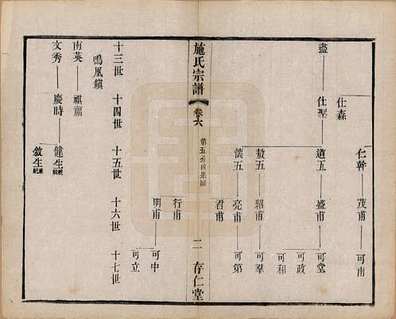 仁幹 茂甫 可南
仕森
盡 仕聖 道五 盛甫 可堂
可政
可和
敖五 紹甫 可羣
儀五 亮甫 可第
君甫
施氏宗譜 卷六 二 存仁堂
行甫
明甫 可中
可立
十三世 十四世 十五世 十六世 十七世
鳴鳳鎮
南英 麒麟
文秀 慶時 健生
敘生